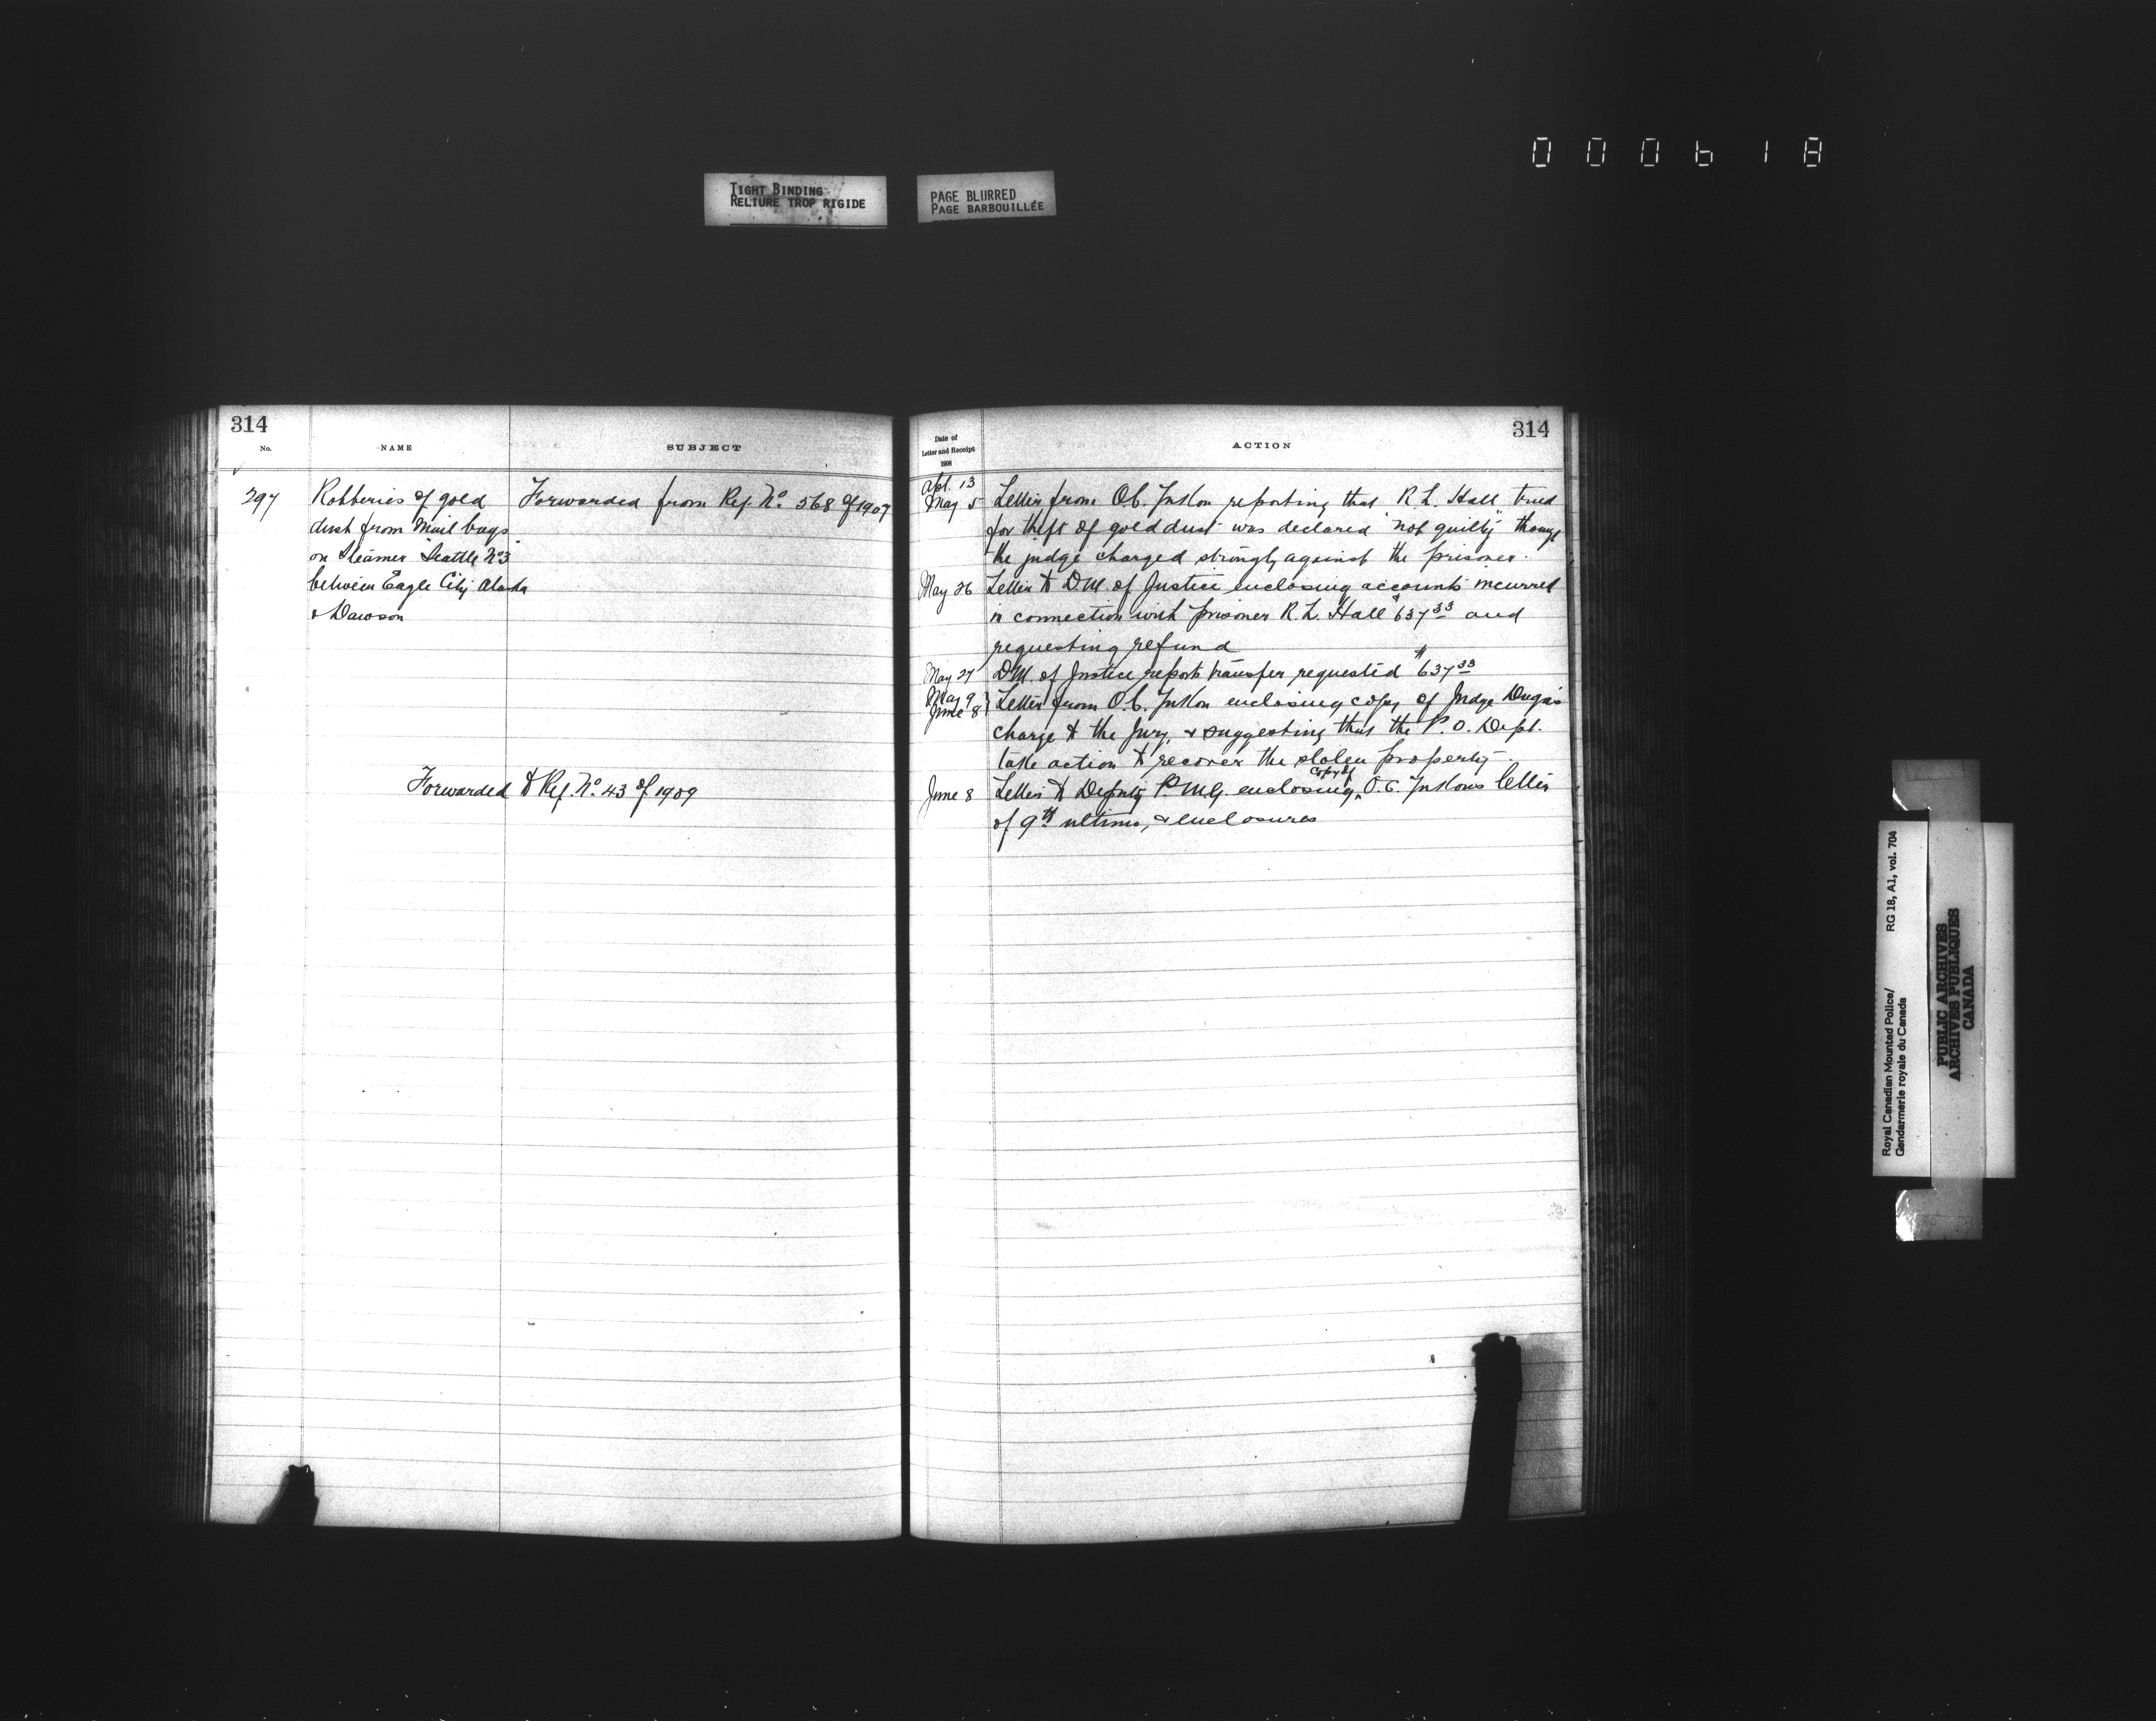 000618
TIGHT BINDING
RELIURE TROP RIGIDE
PAGE BLURRED
PAGE BARBOUILLÉE
314
No.
NAME
SUBJECT
297
Robberies of gold
dust from Mail bags
on Steamer "Seattle No 3"
between Eagle City Alaska
& Dawson
Forwarded from Ref. No. 568 of 1907
Forwarded to Ref. No. 43 of 1909
314
Date of
Letter and Receipt
1908
ACTION
Apl. 13
May 5 Letter from O.C. Yukon reporting that R. L. Hall, tried
for theft of gold dust was declared "not guilty" though
the judge charged strongly against the prisoner.
May 26 Letter to D.M. of Justice enclosing accounts incurred
in connection with prisoner R. L. Hall $637 33 and
requesting refund
May 27 D.M. of Justice reports transfer requested $637 33
May 9
June 8 } Letter from O.C. Yukon enclosing copy of Judge Dugas
charge to the Jury, & suggesting that the P.O. Dept.
take action to recover the stolen property.
June 8 Letter to Deputy P.M.G. enclosing copy of O.C. Yukons letter
of 9th ultimo, & enclosures
Royal Canadian Mounted Police/
Gendarmerie royale du Canada
RG 18, A1, vol. 704
PUBLIC ARCHIVES
ARCHIVES PUBLIQUES
CANADA